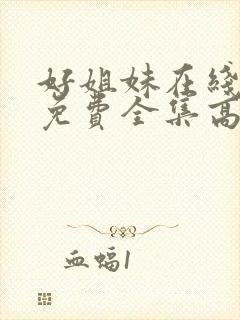 好姐妹在线
免费全集高
血蝠1